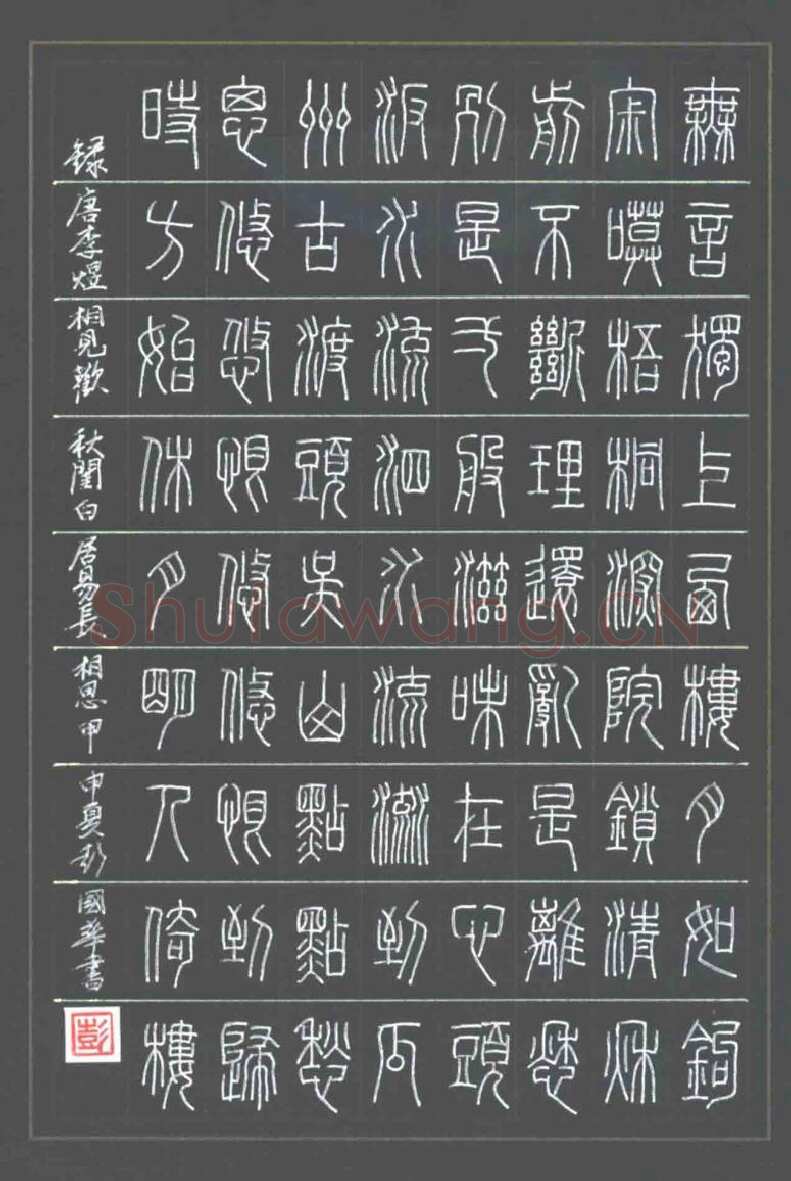 無言獨上西樓月如鉤
寂寞梧桐深院鎖清秋
剪不斷理還亂是離愁
別是一般滋味在心頭
汴水流泗水流流到瓜
州古渡頭吳山點點愁
思悠悠恨悠悠恨到歸
時方始休月明人倚樓
錄唐李煜相見歡秋閨白居易長相思甲申夏彭國華書
彭
Shufawang.CN